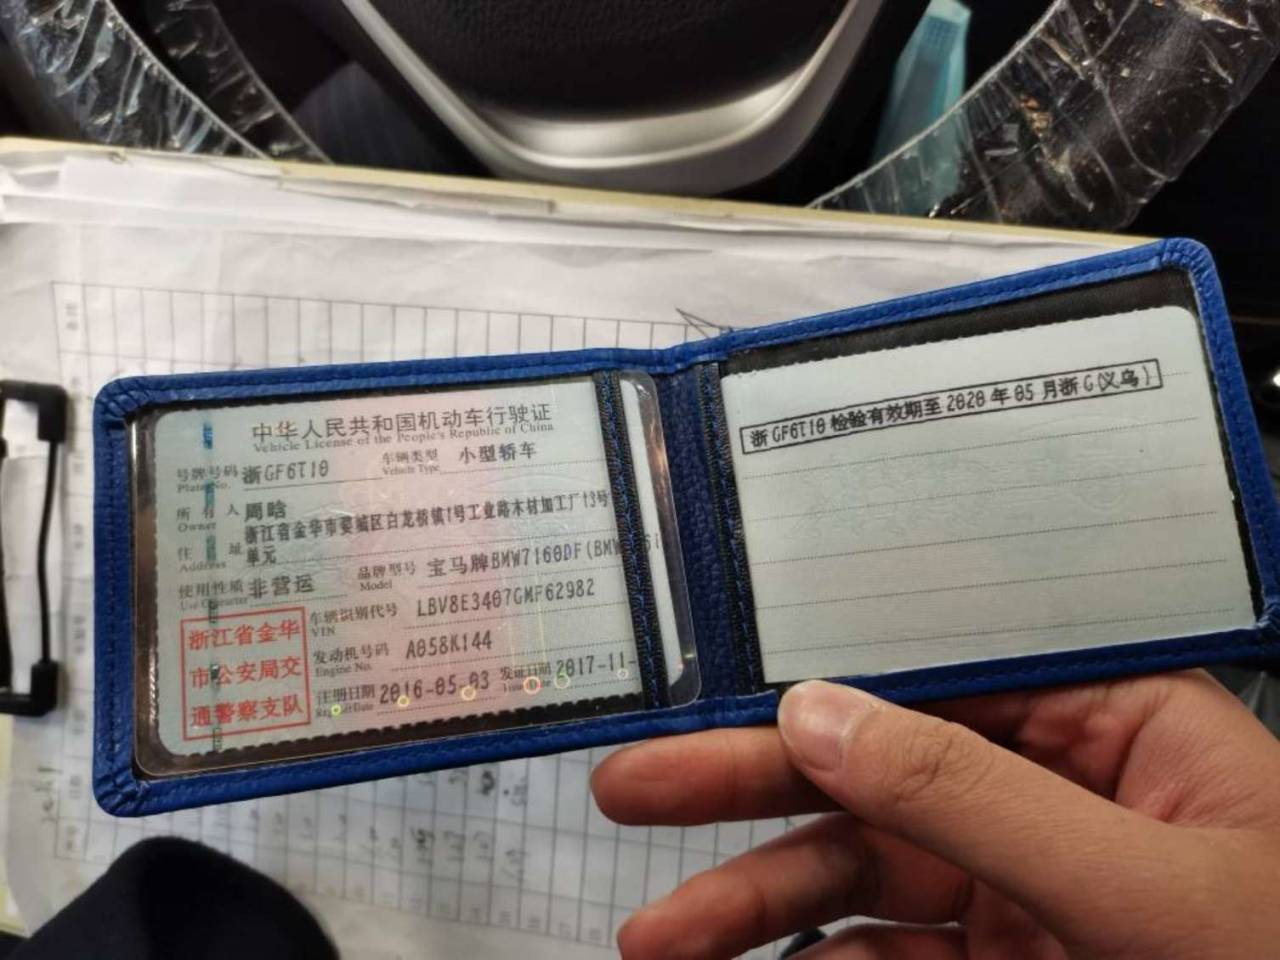 中华人民共和国机动车行驶证
Vehicle License of the People's Republic of China
号牌号码 浙GF6T10 车辆类型 小型轿车
Plate No. Vehicle Type
所有人 周晗
Owner
住址 浙江省金华市婺城区白龙桥镇1号工业路木材加工厂13号
单元
Address
使用性质 非营运 品牌型号 宝马牌BMW7160DF(BMW
Use Character Model
浙江省金华
市公安局交
通警察支队
车辆识别代号 LBV8E3407GMF62982
VIN
发动机号码 A058K144
Engine No.
注册日期 2016-05-03 发证日期 2017-11-
Register Date Issue Date
浙GF6T10 检验有效期至 2020 年 05 月浙 G(义乌)